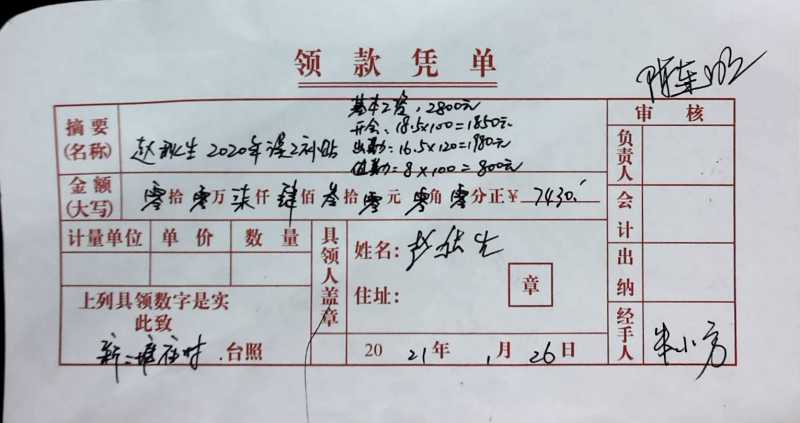 领款凭单
基本工资:2800元
开会:18.5x100=1850元
出勤:16.5x120=1980元
值勤:8x100=800元
摘要(名称) 赵秋生2020年误工补贴
金额(大写) 零拾零万柒仟肆佰叁拾零元零角零分正¥7430.
计量单位 单价 数量
具领人盖章
姓名:赵秋生
住址:
章
上列具领数字是实
此致
台照
2021年1月26日
审核
负责人
会计
出纳
经手人 朱小方